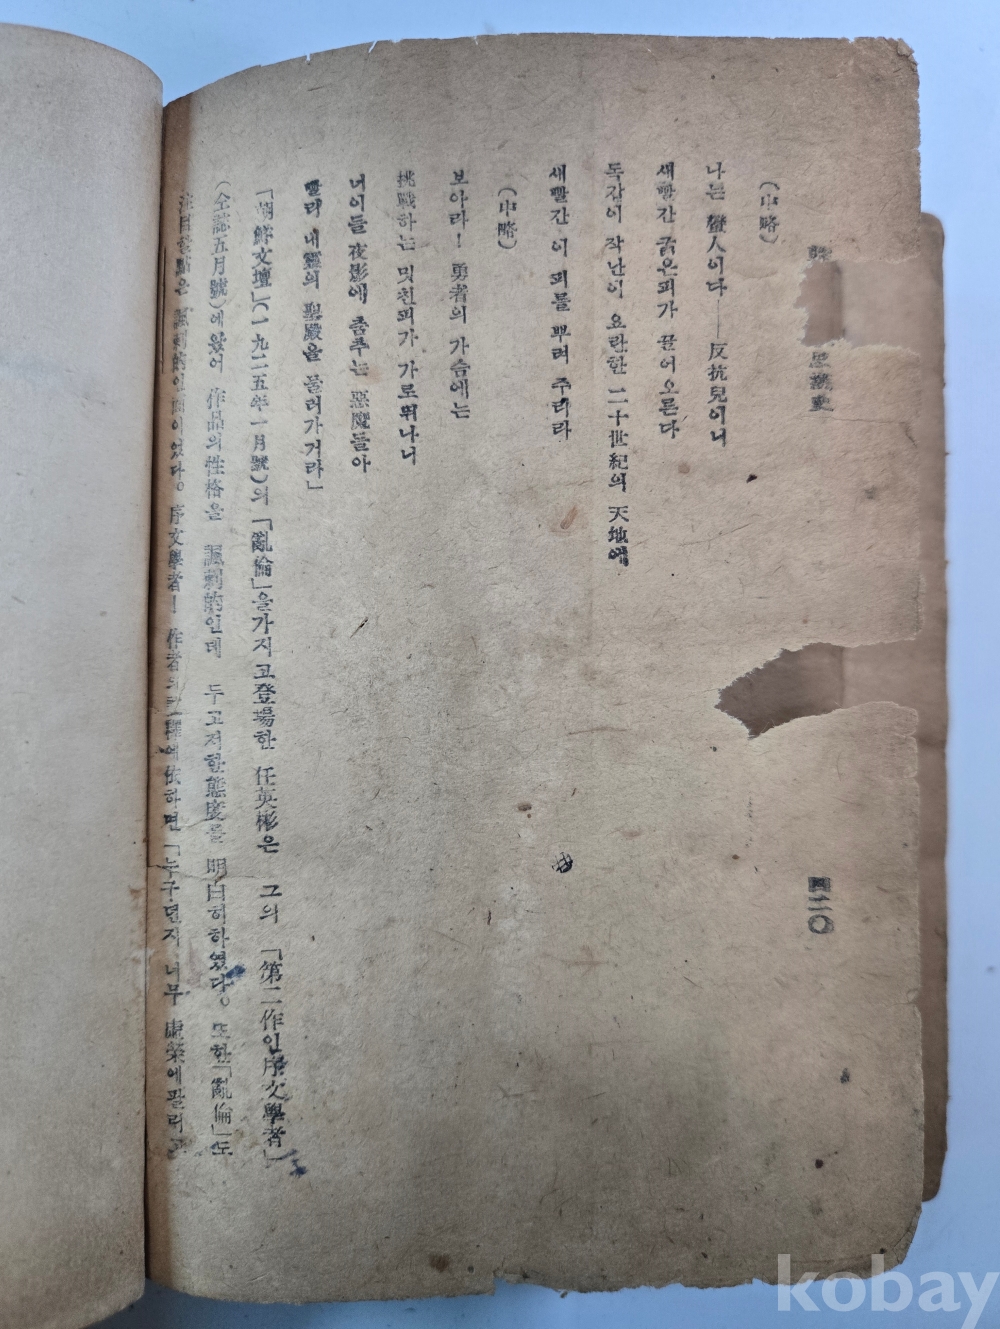 思潮史
四二〇
(中略)
나는 蠻人이다——反抗兒이니
새빨간 굵은피가 끌어오른다
독갑이 작난이 요란한 二十世紀의 天地에
새빨간 이 피를 뿌려 주리라
(中略)
보아라! 勇者의 가슴에는
挑戰하는 밋친피가 가로뛰나니
너이들 夜影에 춤추는 惡魔들아
빨리 내靈의 聖殿을 물러가거라」
「朝鮮文壇」(一九二五年一月號)의 「亂倫」을가지고登場한 任英彬은 그의 「第二作인序文學者」
(全誌五月號)에왔어 作品의性格을 諷刺的인데 두고저한態度를 明白히하였다。 또한「亂倫」도
注目할點은 諷刺的인 이였다。 序文學者! 作者의 에依하면「누구던지 너무 虛榮에팔리고